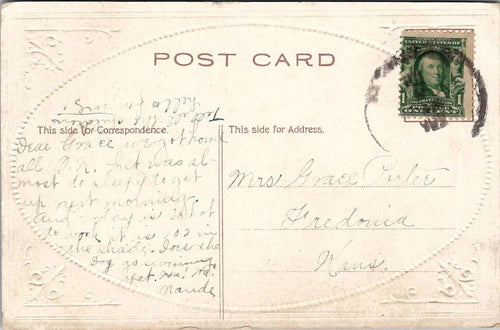 POST CARD
UNITED STATES OF AMERICA
1
ONE CENT
This side for Correspondence.
This side for Address.
Dear Grace we got home
all O.K. but was al-
most to sleepy to get
up next morning.
and today is so hot
to work it is 102 in
the shade. Does the
Dog go swimming
yet. Ha! Ha!
Maude
Tell all the children
hello for
Mrs Grace Porter
Fredonia
Kans.